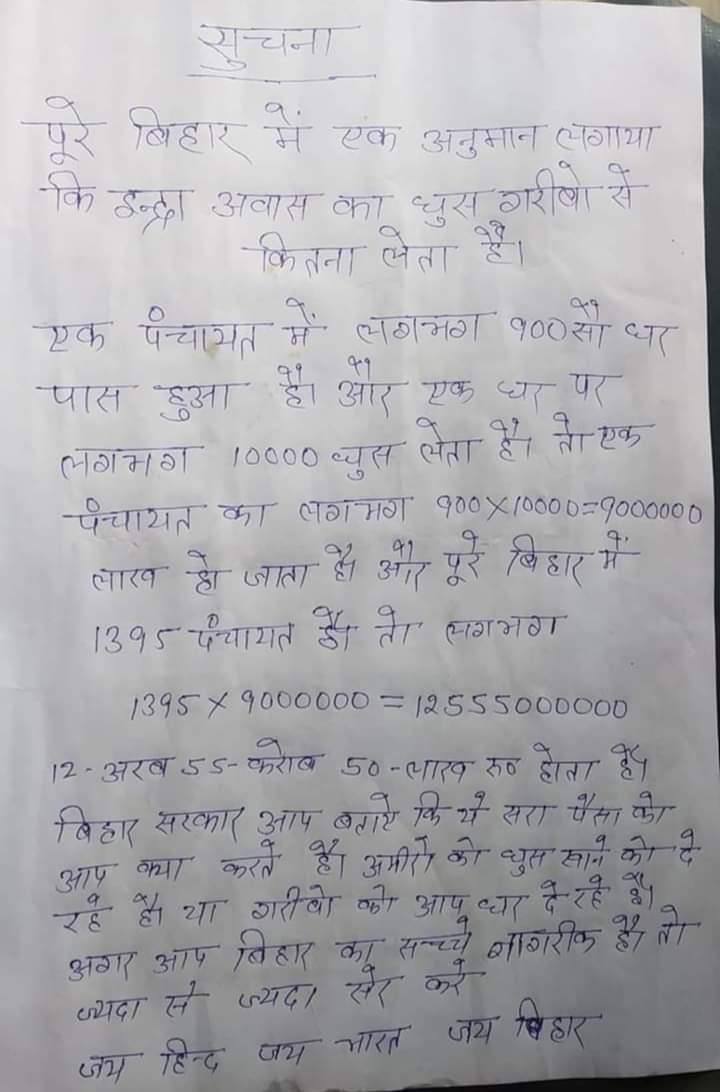 सुचना
पूरे बिहार में एक अनुमान लगाया
कि इन्द्रा अवास का घुस गरीबो से
कितना लेता है।
एक पंचायत में लगभग 900 सौ घर
पास हुआ है। और एक घर पर
लगभग 10000 घुस लेता है। तो एक
पंचायत का लगभग 900×10000=9000000
लाख हो जाता है। और पूरे बिहार में
1395 पंचायत है। तो लगभग
1395 × 9000000 = 12555000000
12-अरब 55-करोब 50-लाख रू० होता है।
बिहार सरकार आप बताऐ कि ये सरा पैसा को
आप क्या करते है। अमीरो को घुस खाने को दे
रहे है। या गरीबो को आप घर दे रहे है।
अगर आप बिहार का सच्चे नागरीक है। तो
ज्यदा से ज्यदा सेर करे
जय हिन्द जय भारत जय बिहार